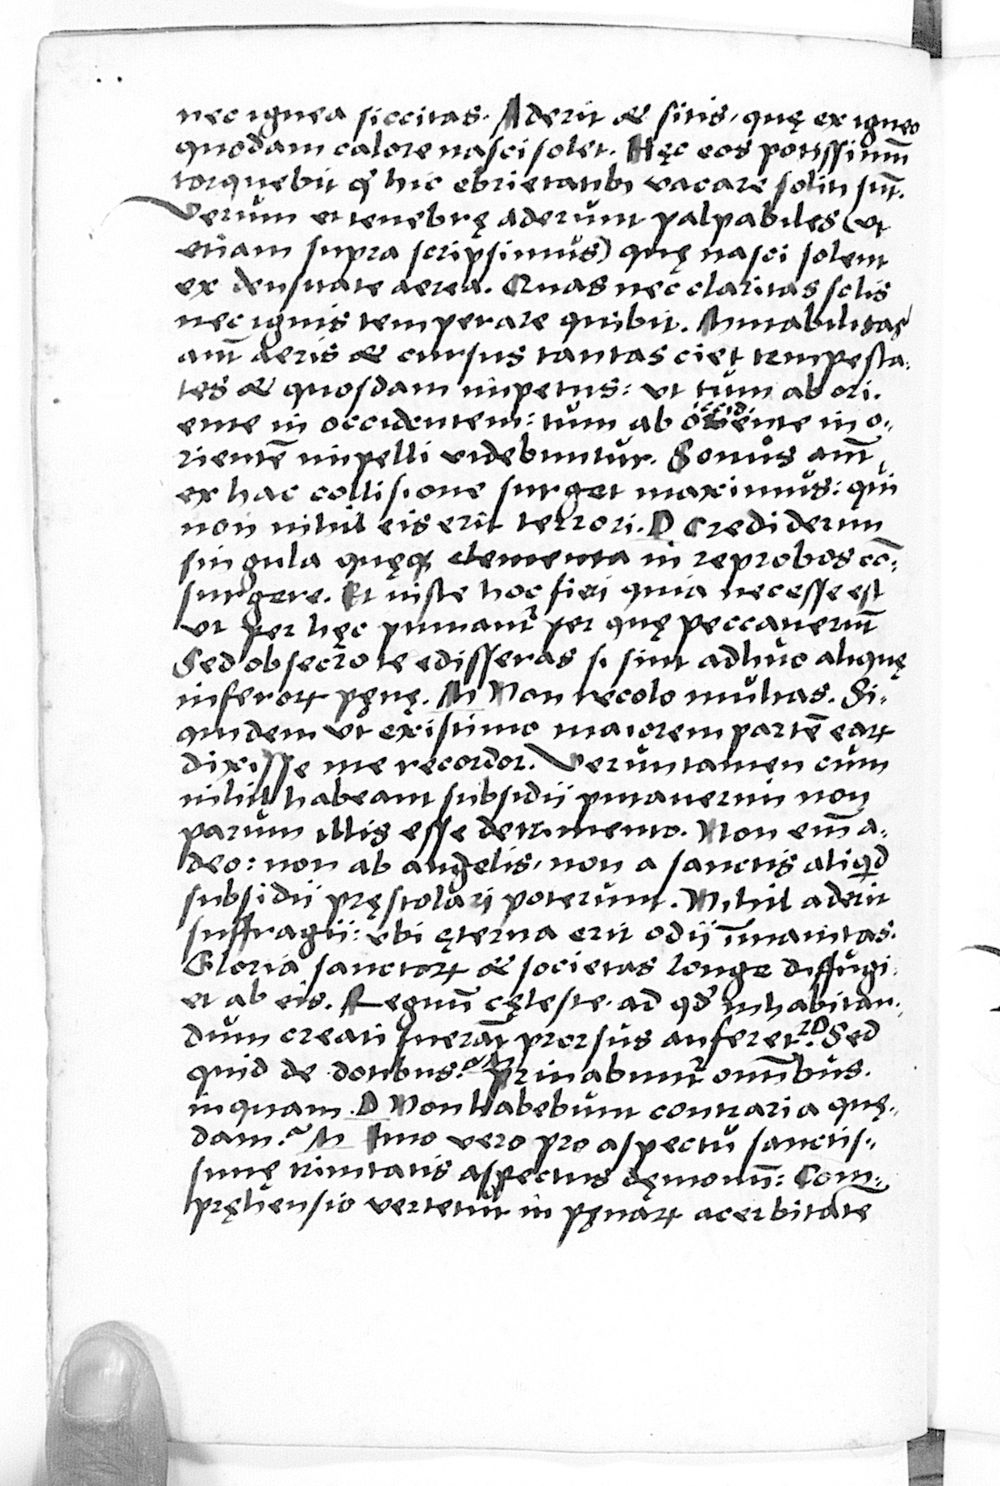 nec ignea siccitas. Aderit & sitis, quę ex igneo
quodam calore nasci solet. Hęc eos potissimū
torquebit q̇ hic ebrietatibꝰ vacare soliti sūt.
Verum et tenebrę aderunt palpabiles (vt
etiam supra scripsimus) quę nasci solent
ex densitate aerea. Quas nec claritas solis
nec ignis temperare quibit. Mutabilitas
aūt aeris & cursus tantas ciet tempesta-
tes & quosdam impetus: vt tum ab ori-
ente in occidentem: tum ab occidente in o-
rientē impelli videbuntur. Sonus aūt
ex hac collisione surget maximus: qui
non nihil eis erit terrori. D Crediderim
singula quęq; elementa in reprobos cō-
surgere. Et iuste hoc fieri quia necesse est
vt per hęc puniant̃ per quę peccauerūt
Sed obsecro te edisseras si sint adhuc aliquę
inferoꝝ pęnę. M Non recolo multas. Si-
quidem vt existimo maiorem partē eaꝝ
dixisse me recordor. Veruntamen cum
nihil habeant subsidii putauerim non
parum illis esse detrimento. Non em̄ a
deo: non ab angelis, non a sanctis aliqd
subsidii pręstolari poterunt. Nihil aderit
suffragii: vbi ęterna erit odij īmanitas.
Gloria sanctoꝝ & societas longe diffugi-
et ab eis. Regnū cęleste, ad qd̓ inhabitan-
dum creati fuerāt prorsus auferet̃. D Sed
quid de dotibus? M Priuabunt̃ omībus.
inquam. D Non habebunt contraria quę-
dam? M Imo vero pro aspectu sanctis-
simę trinitatis aspectus dęmonū: Com-
pręhensio vertetur in pęnaꝝ acerbitatē